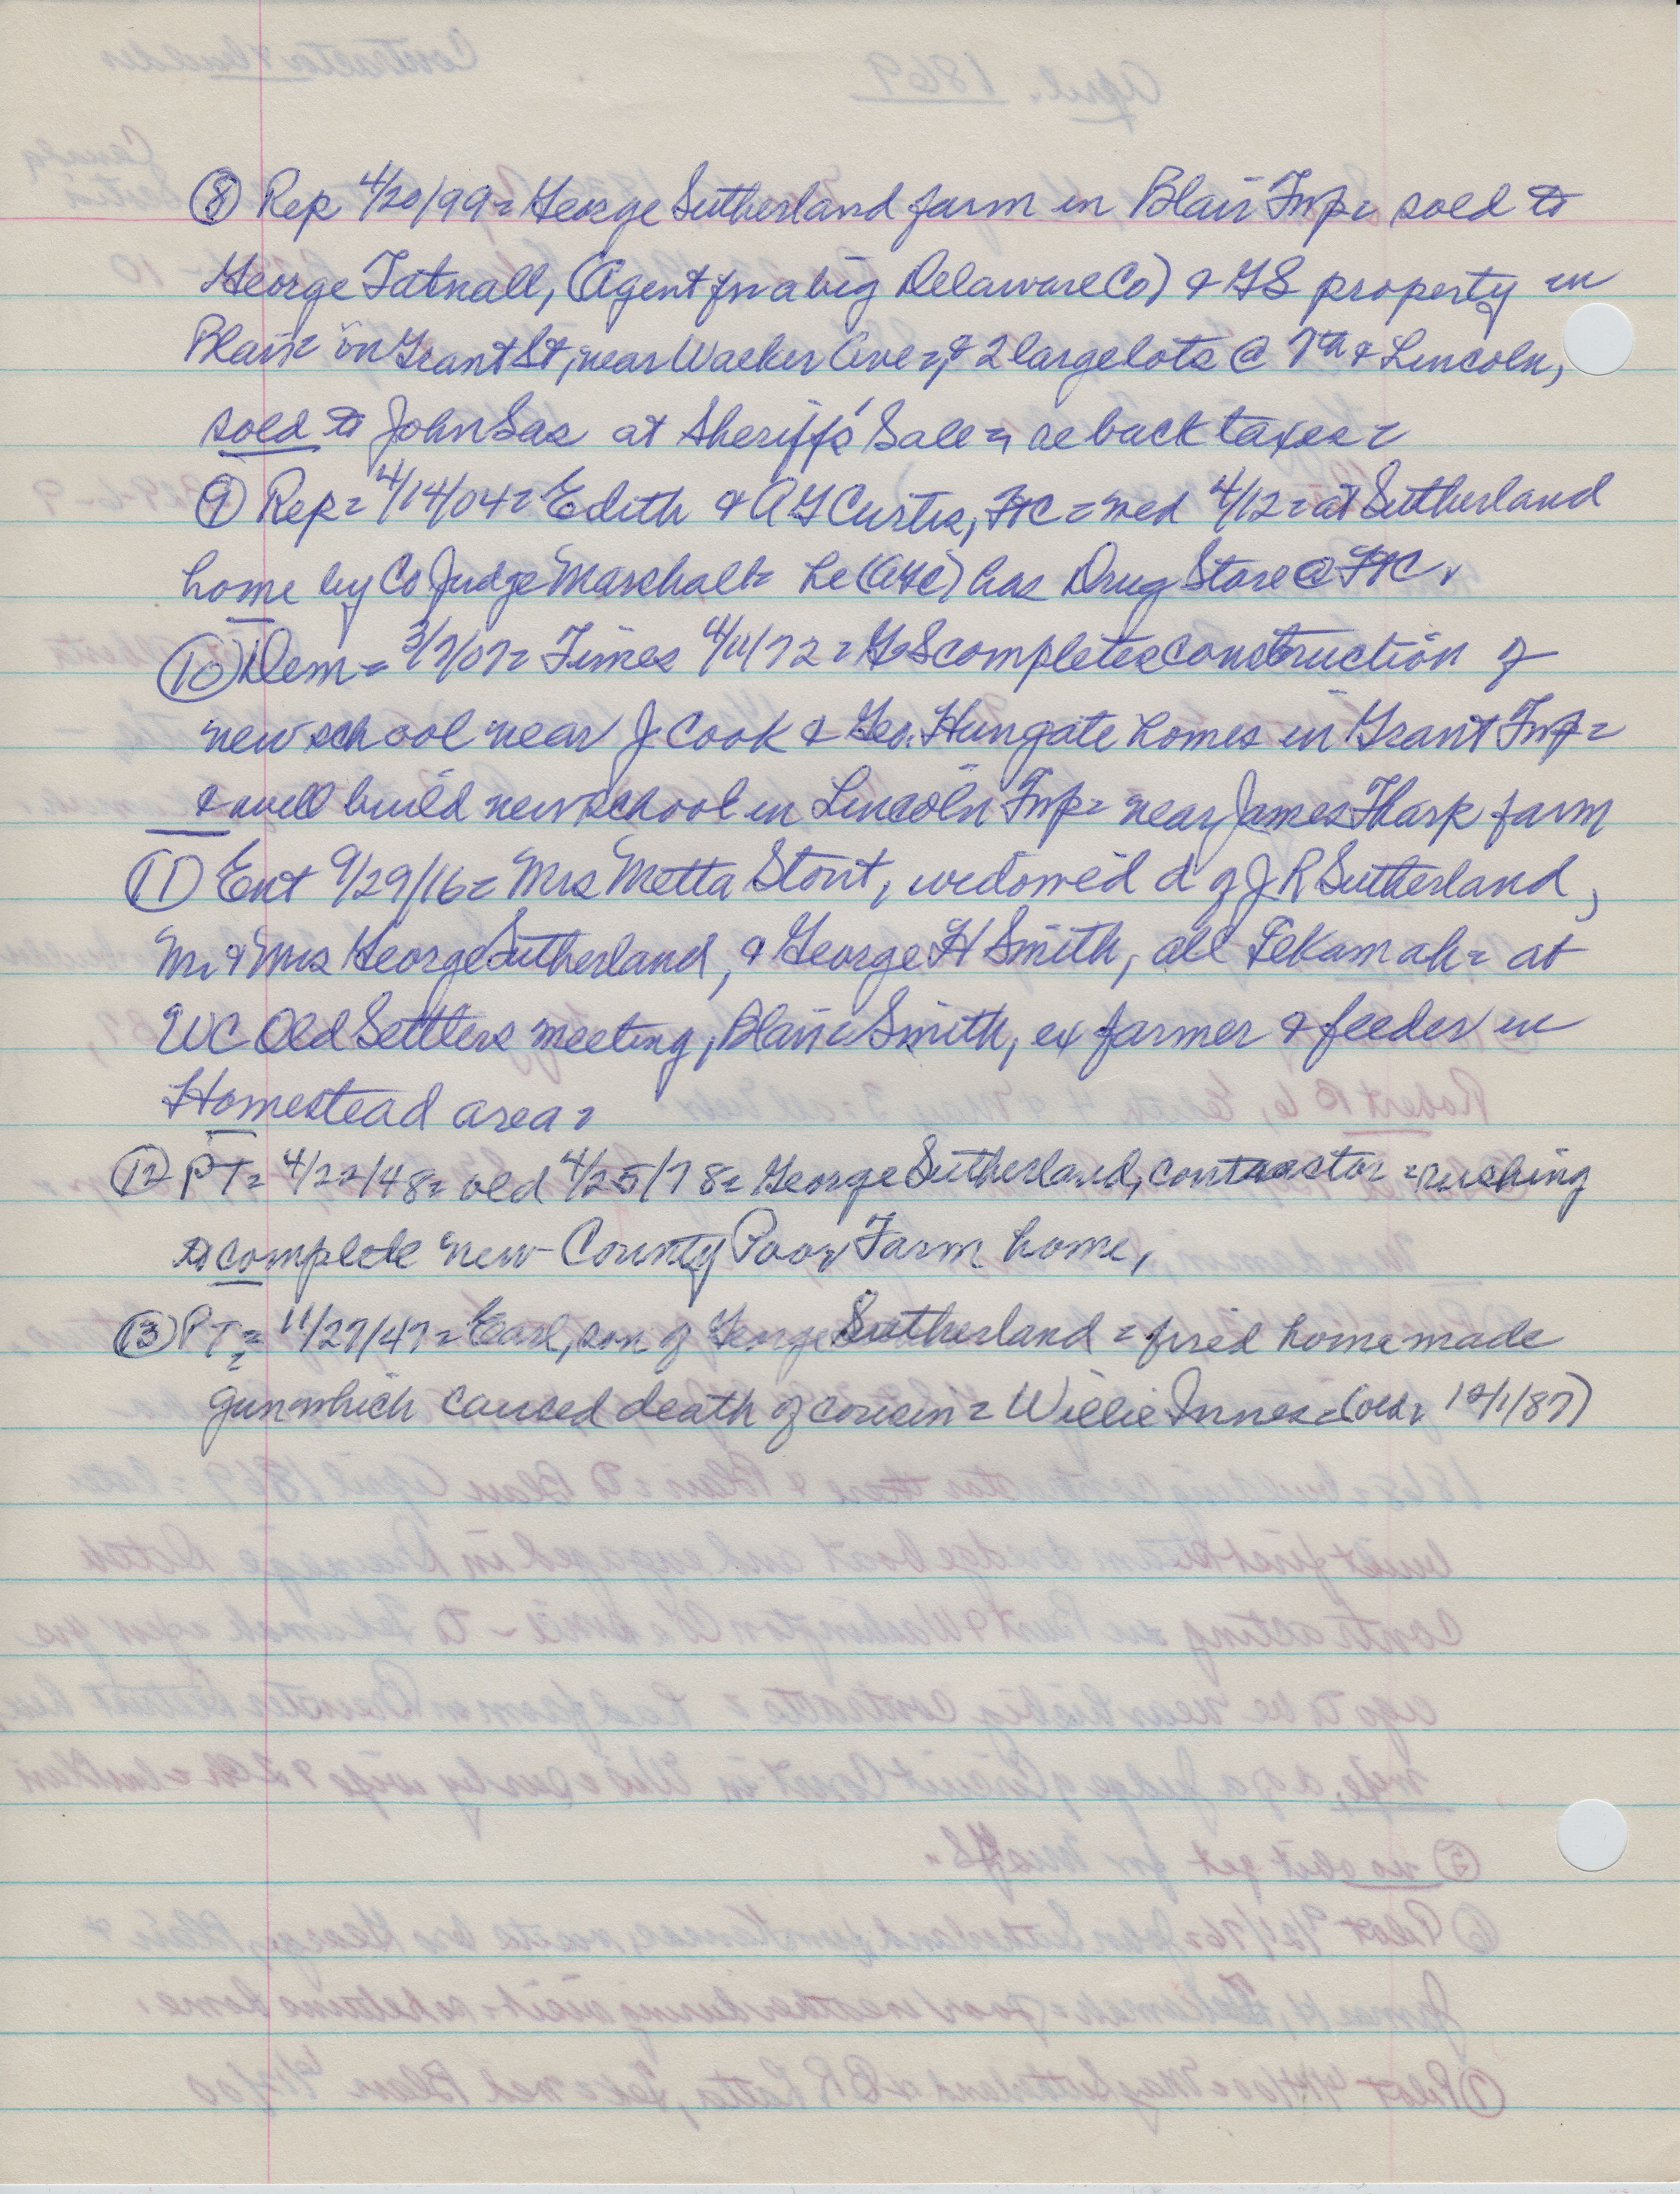 ⑧ Rep 4/20/99= George Sutherland farm in Blair Twp= sold to
George Tatnall, (Agent for a big Delaware Co) & GS property in
Blair= on Grant St, near Walker Ave=, & 2 large lots @ 7th & Lincoln,
sold to John Sas at Sheriff's Sale=, re back taxes=
⑨ Rep= 4/14/04= Edith & AG Curtis, FtC = wed 4/12= at Sutherland
home by Co Judge Marschall= he (AGC) has Drug Store @ FtC.
⑩ Dem= 3/7/07= Times 4/11/72= GS completes construction of
new school near J Cook & Geo. Hungate homes in Grant Twp=
& will build new school in Lincoln Twp= near James Thark farm
⑪ Ent 9/29/16= Mrs Metta Stout, widowed d of J R Sutherland,
Mr & Mrs George Sutherland, & George H Smith, all Tekamah= at
WC Old Settlers meeting, Blair= Smith, ex farmer & feeder in
Homestead area=
⑫ PT= 4/22/48= old 4/25/78= George Sutherland, contractor = rushing
to complete new County Poor Farm home,
⑬ PT= 11/27/47= Earl, son of George Sutherland = fired home made
gun which caused death of cousin= Willie Innes= (old, 12/1/87)